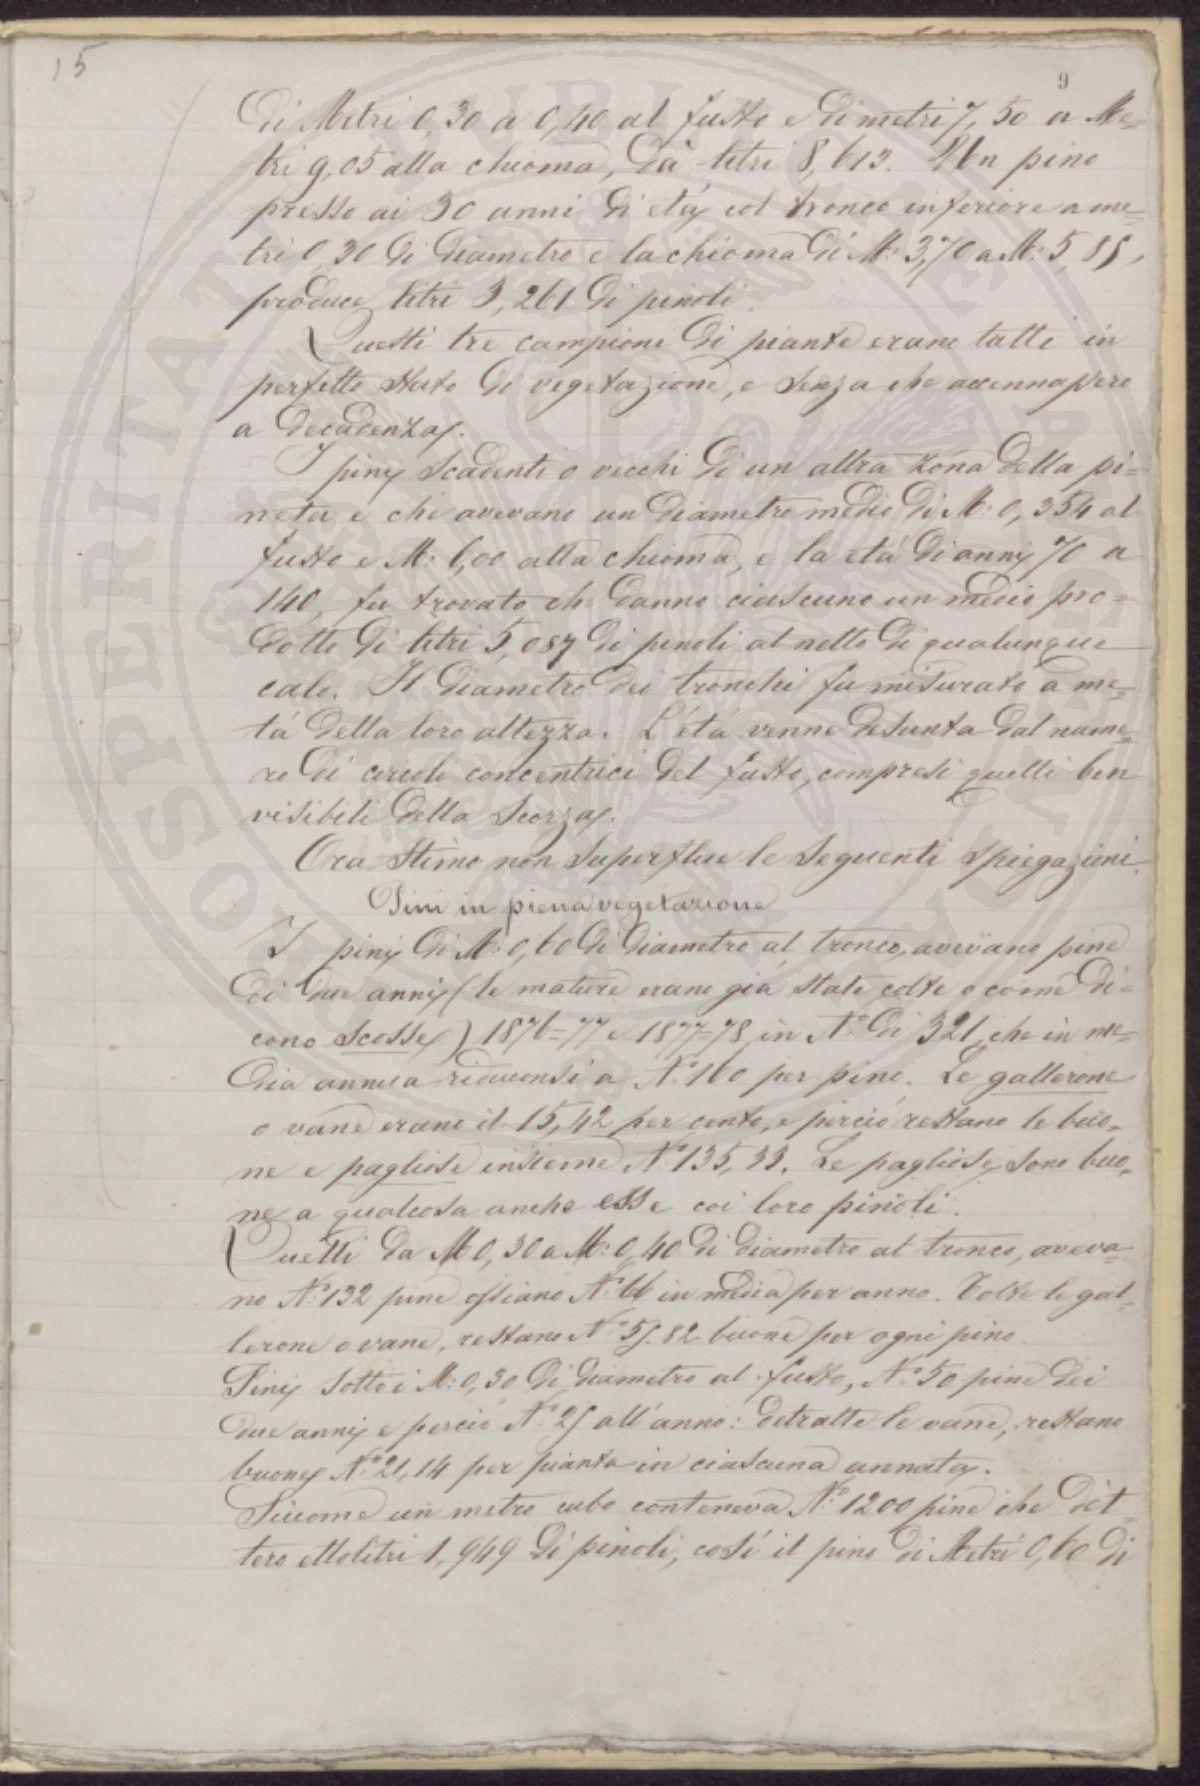 15
9
di Metri 0,30 a 0,40 al fusto e di metri 7,50 a Me=
tri 9,05 alla chioma, dà litri 8,613. Un pino
presso ai 30 anni di età col tronco inferiore a me=
tri 0,30 di diametro e la chioma di M: 3,70 a M: 5,85,
produce litri 3,261 di pinoli.
Questi tre campioni di piante erano tutti in
perfetto stato di vegetazione, e senza che accennassero
a decadenza.
I pini scadenti o vecchi di un altra zona della pi=
neta e che avevano un diametro medio di M: 0,354 al
fusto e M: 6,00 alla chioma, e la età di anni 70 a
140, fu trovato che danno ciascuno un medio pro=
dotto di litri 5,087 di pinoli al netto di qualunque
calo. Il diametro dei tronchi fu misurato a me=
tà della loro altezza. L'età venne desunta dal nume=
ro di circoli concentrici del fusto, compresi quelli ben
visibili della scorza.
Ora stimo non superflue le seguenti spiegazioni.
Pini in piena vegetazione
I pini di M: 0,60 di diametro al tronco, avevano pine
di due anni (le mature erano già state colte o come di=
cono scosse) 1876=77 e 1877=78 in N.º di 321, che in me=
dia annua riduconsi a N.º 160 per pino. Le gallerone
o vane erano il 15,42 per cento, e perciò restano le buo=
ne e pagliose insieme N.º 135,33. Le pagliose sono buo=
ne a qualcosa anche esse coi loro pinoli.
Quelli da M 0,30 a M: 0,40 di diametro al tronco, aveva=
no N.º 132 pine ossiano N.º 66 in media per anno. Tolte le gal=
lerone o vane, restano N.º 55.82 buone per ogni pino.
Pini sotto i M: 0,30 di diametro al fusto, N.º 50 pine dei
due anni e perciò N.º 25 all'anno: detratte le vane, restano
buone N.º 21,14 per pianta in ciascuna annata.
Siccome un metro cubo conteneva N.º 1200 pine che det=
tero ettolitri 1,949 di pinoli, così il pino di Metri 0,60 di